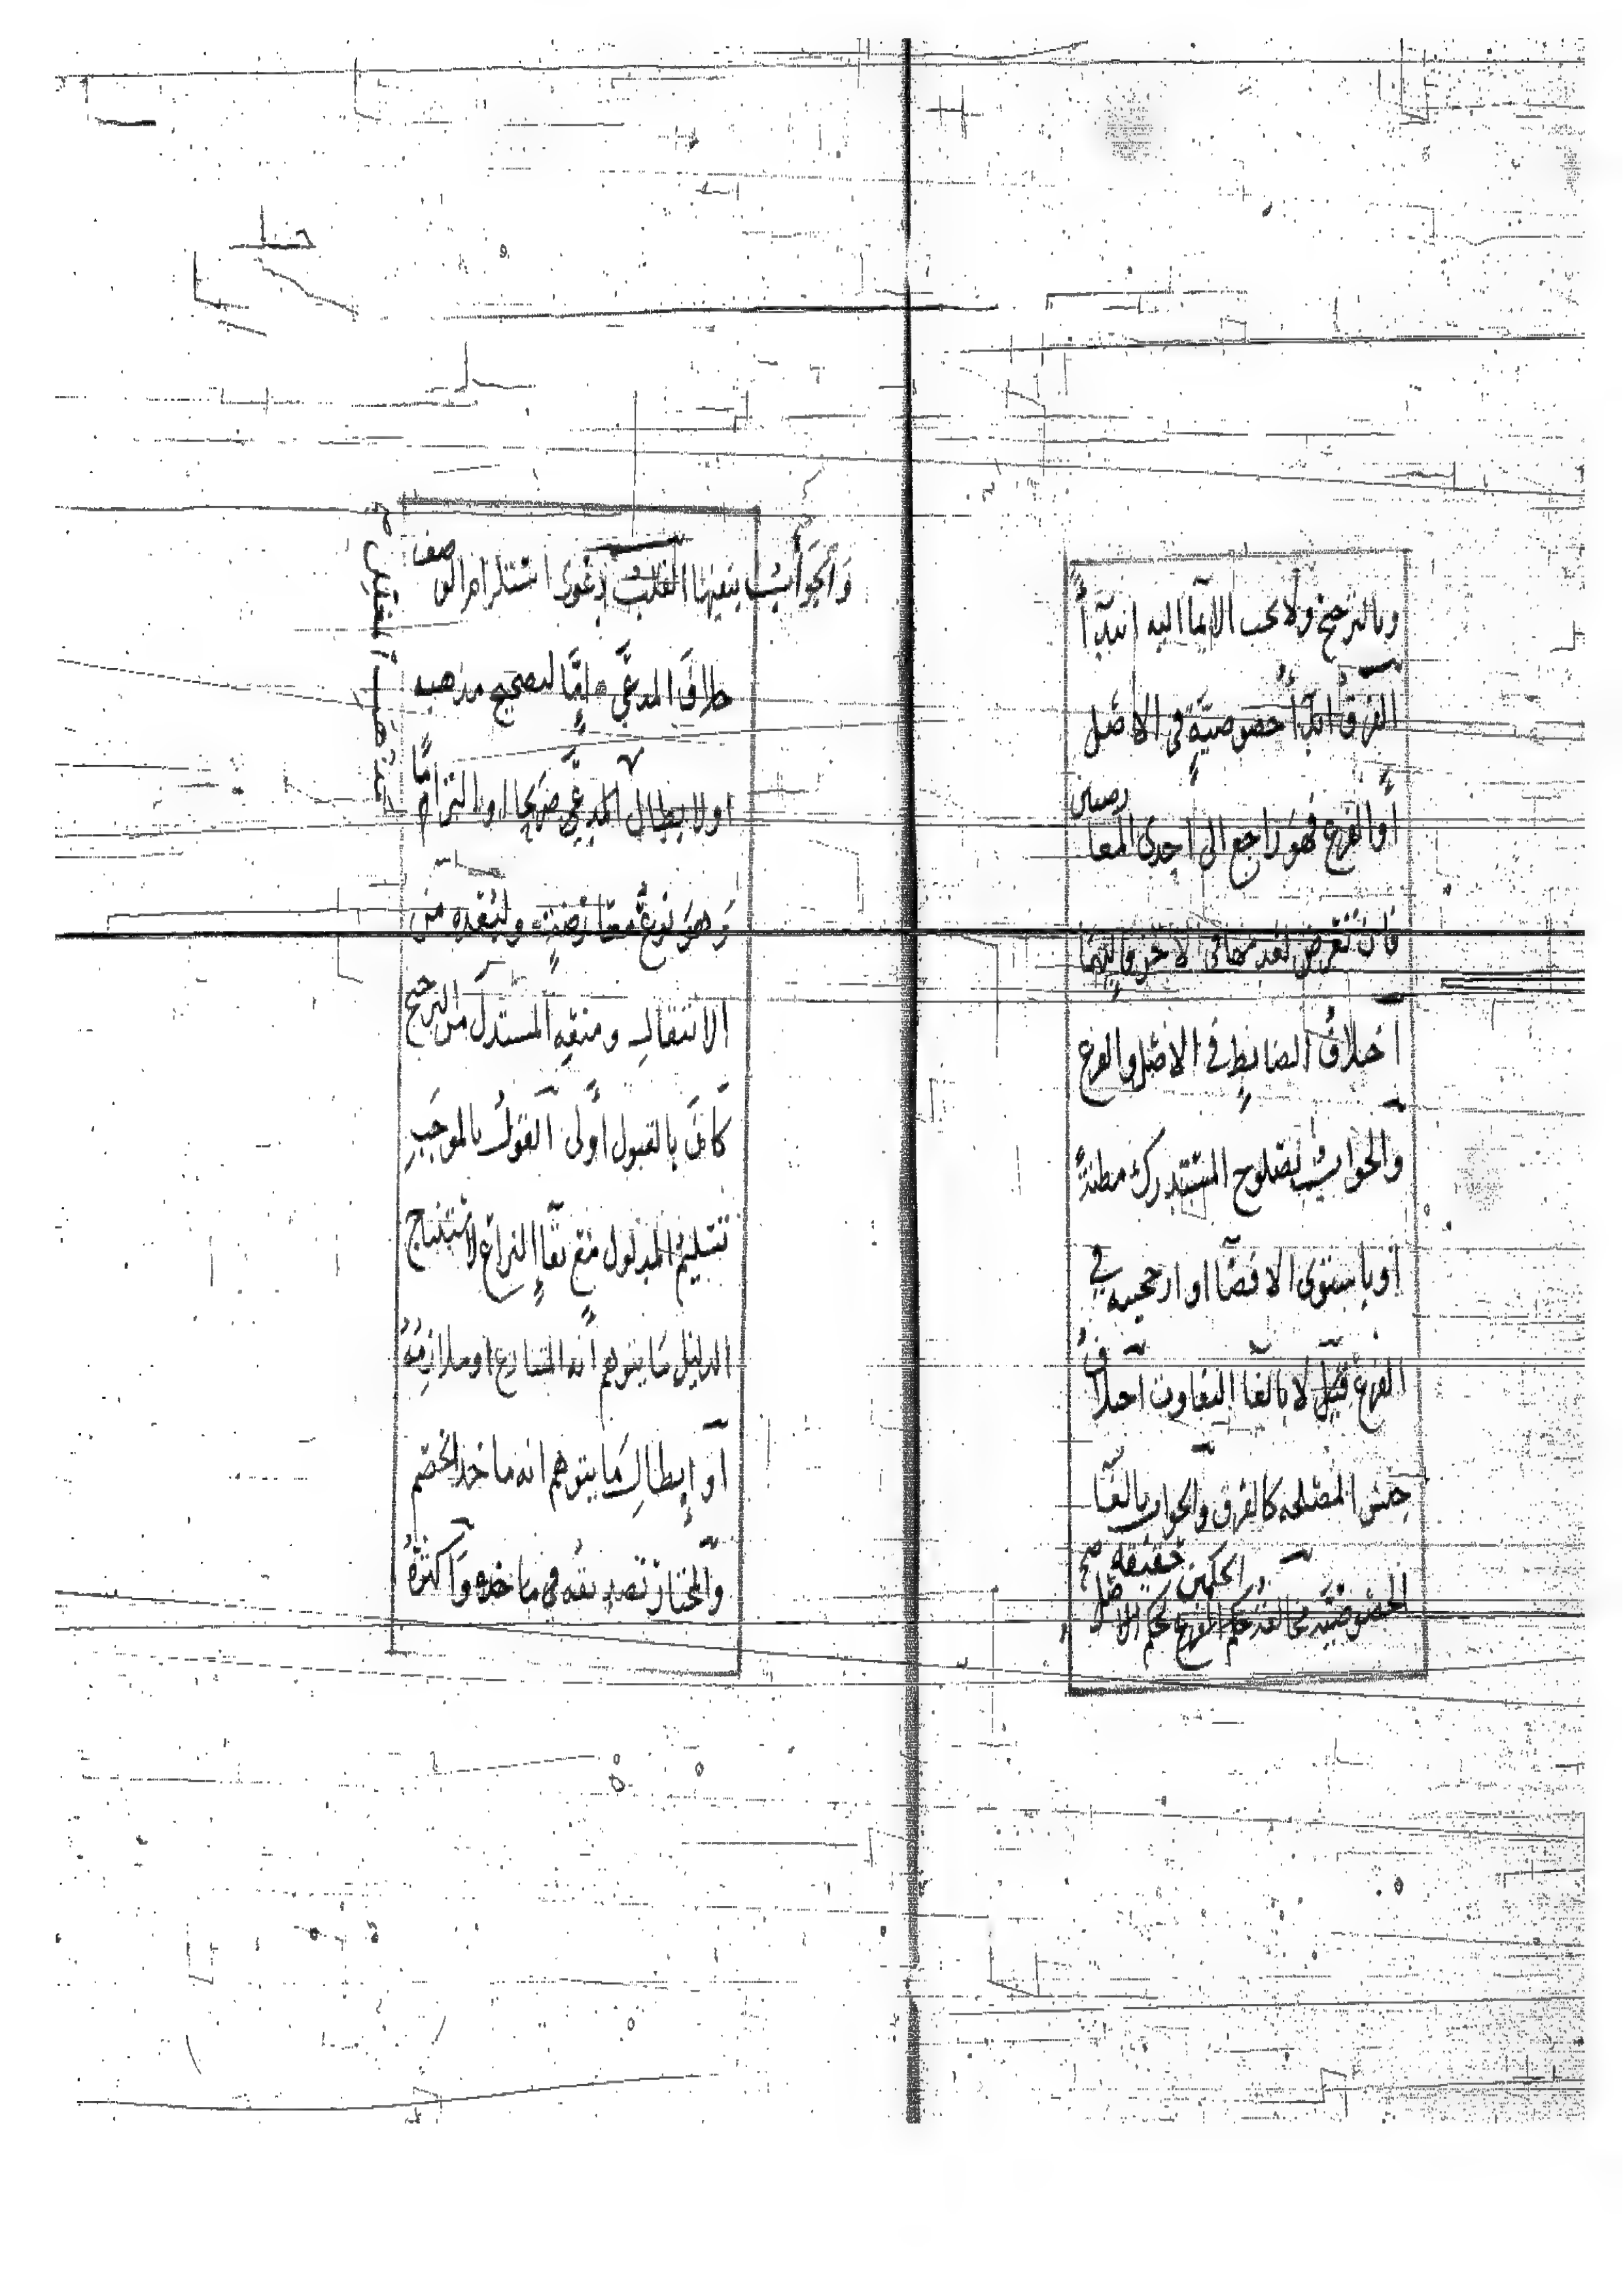 وبالترجيح ولا يجب الايما اليه ابتدآءً
الفرقُ ابدآءُ خصوصيّةٍ في الاصْل
أو الفرع فهوَ راجع الى احدى المعا
رضتين
فان تعرض لعدمها في الآخر فاليهما
اختلافُ الضابطِ في الاصْل والفرع
والجوابُ بصلوح المشترك مظنةً
او باستوى الافضا او ارجحيته في
الفرع قيْل لا بالغا التفاوت اختلافُ
جنس المصْلحه كالفرق والجواب بالغآ
الخصُوصيّه مخالفة حكم الفرع لحكم الاصْل
الحكمين حقيقه صح
وَالجوَابُ ببنفيها القلبُ دعوى اسْتلزام الوصف
خلافَ المدعَّي امَّا لتصحيح مذهبه
اولابطال المدعَّى صَريحا او التزامًا
وَهوَ نوع معَارَضةٍ وليُعَدّه من
الانتقالـ ومنعِه المستدلَ من الترجيح
كانَ بالقبول اَولى القولُ بالموجَبِ
تسْليمُ المدلول مَع بقآءِ النزاع لاسْتنتاج
الدليْل مَا يتوهم انه المتنازع او ملازمُهُ
أو إبطالِ مَا يتوهم انه ماخذ الخصْم
والمختارُ تصديقُه في ماخذه وَاكثرُهُ